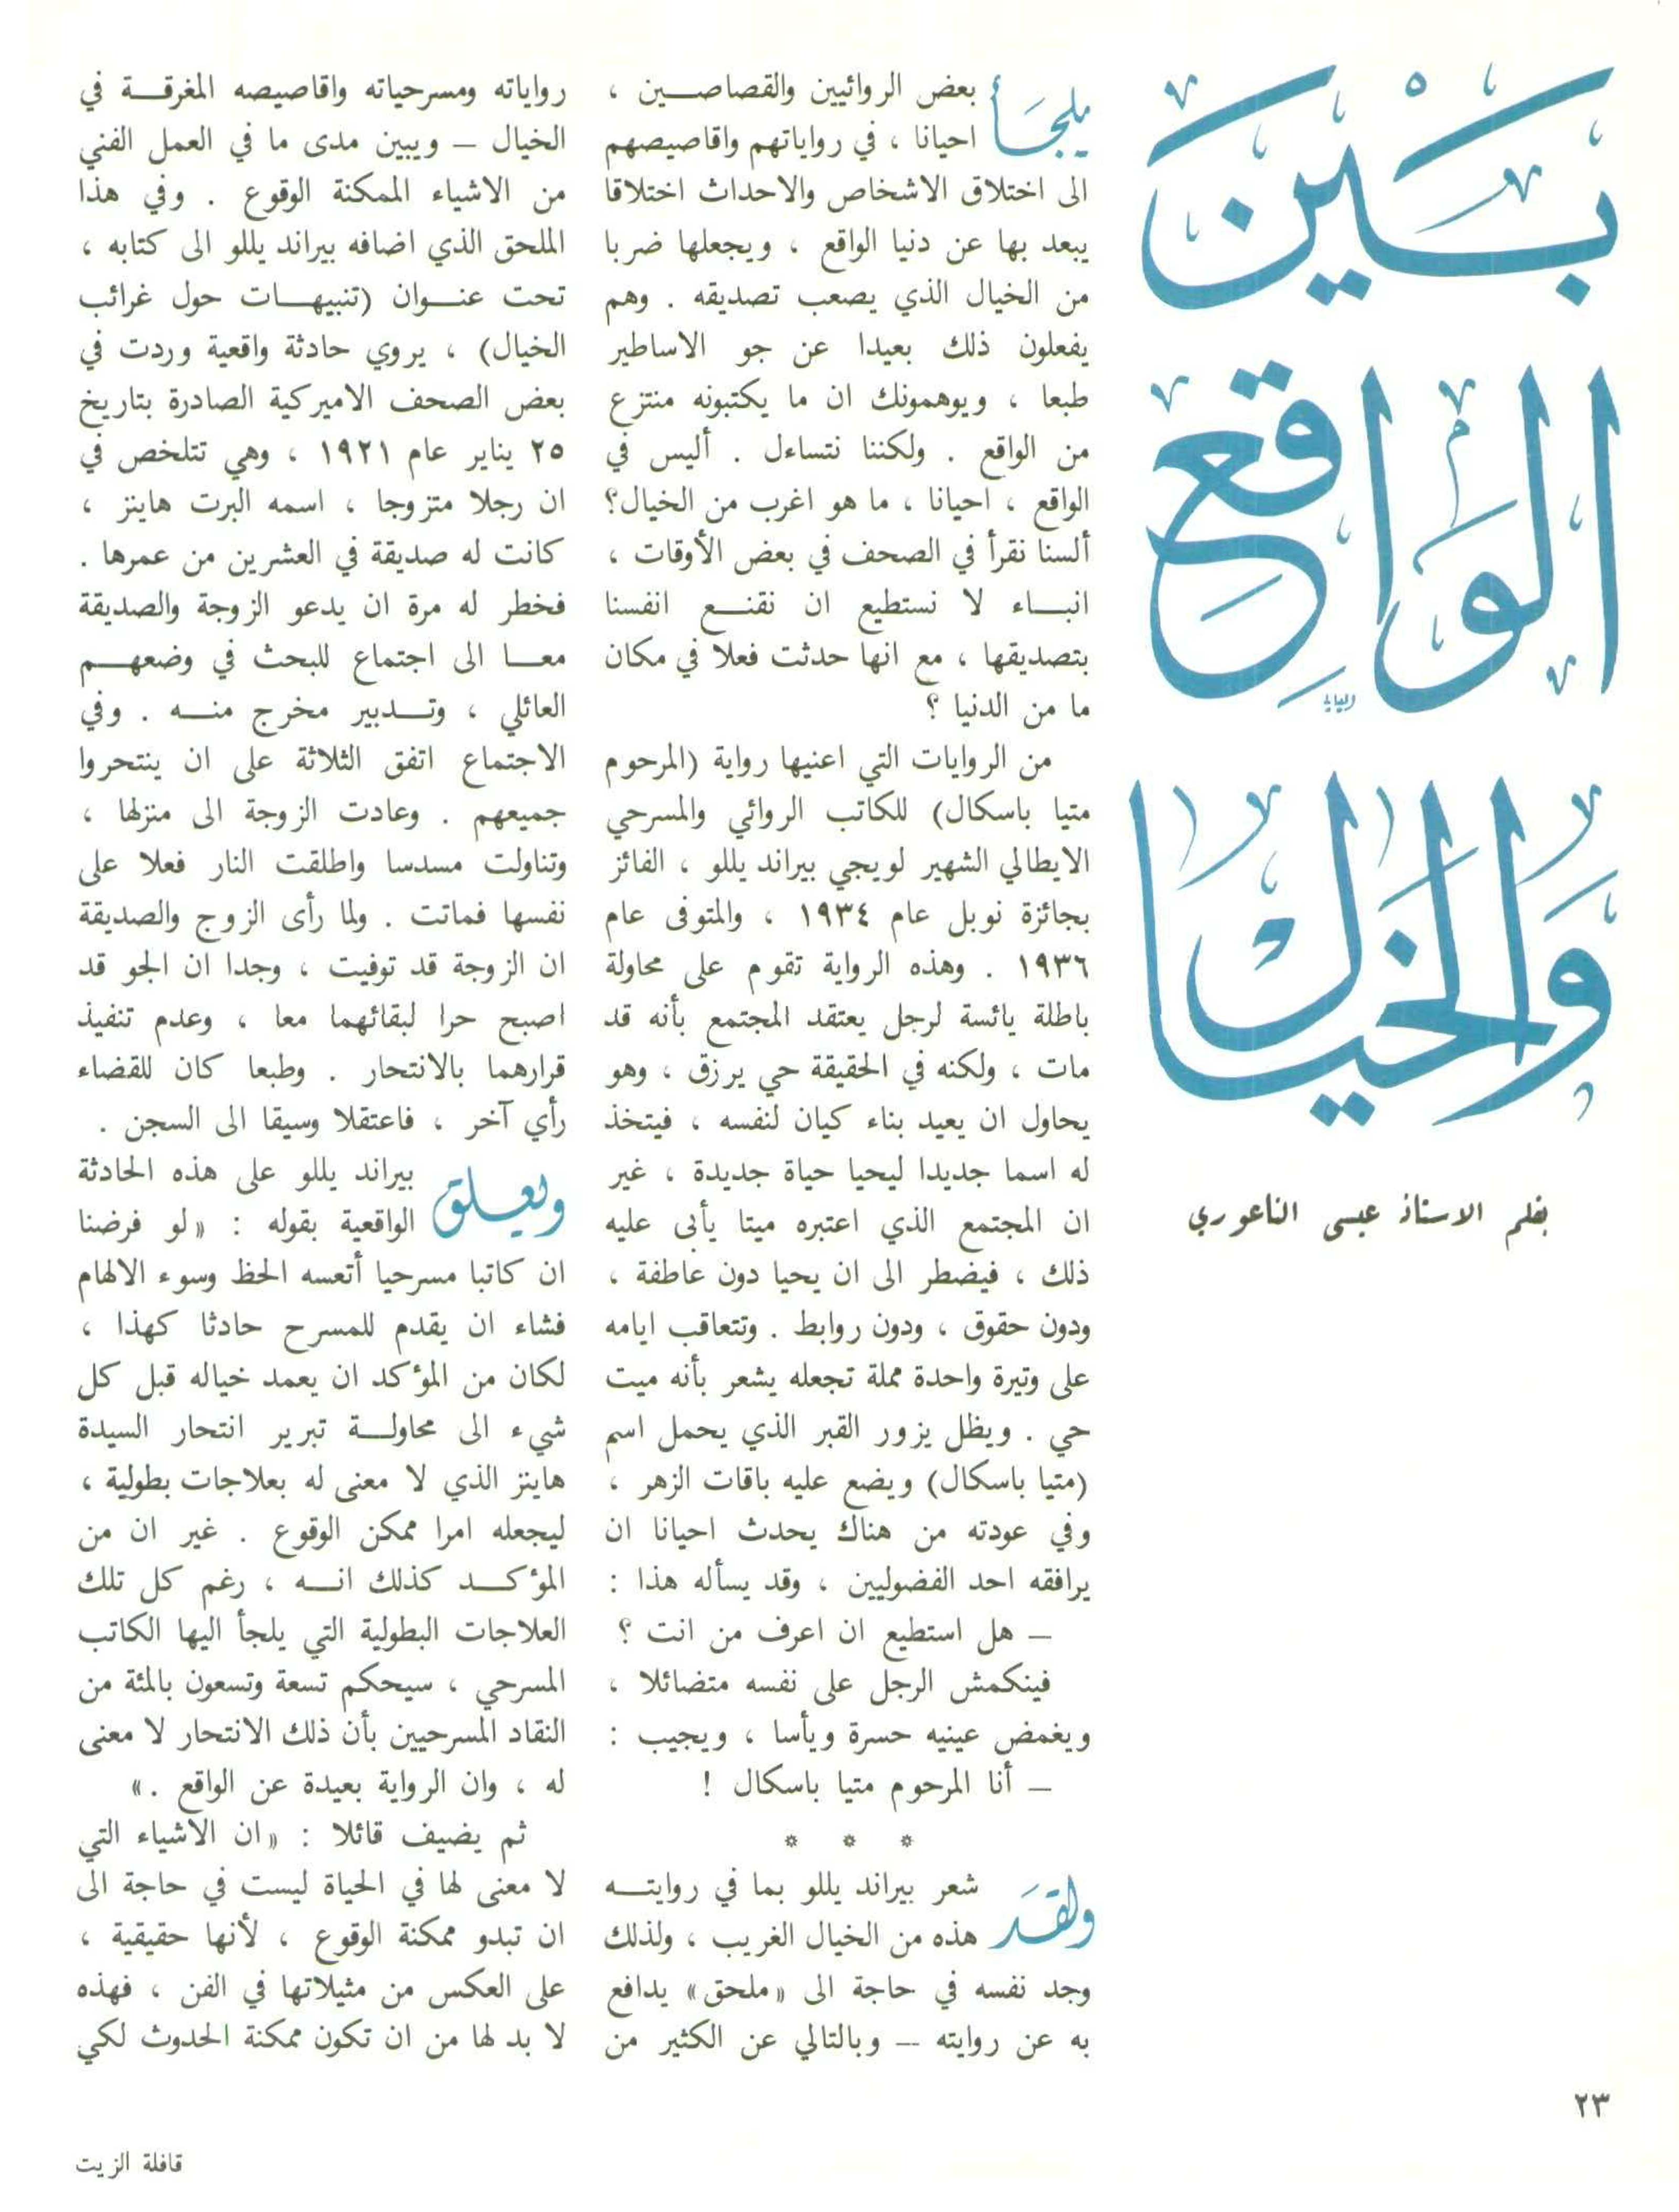 بَيْنَ
الوَاقِعِ
وَالخَيَال
بقلم الاستاذ عيسى الناعوري
يلجَأ بعض الروائيين والقصاصين ،
احيانا ، في رواياتهم واقاصيصهم
الى اختلاق الاشخاص والاحداث اختلاقا
يبعد بها عن دنيا الواقع ، ويجعلها ضربا
من الخيال الذي يصعب تصديقه . وهم
يفعلون ذلك بعيدا عن جو الاساطير
طبعا ، ويوهمونك ان ما يكتبونه منتزع
من الواقع . ولكننا نتساءل . أليس في
الواقع ، احيانا ، ما هو اغرب من الخيال؟
ألسنا نقرأ في الصحف في بعض الأوقات ،
انباء لا نستطيع ان نقنع انفسنا
بتصديقها ، مع انها حدثت فعلا في مكان
ما من الدنيا ؟
من الروايات التي اعنيها رواية (المرحوم
متيا باسكال) للكاتب الروائي والمسرحي
الايطالي الشهير لويجي بيراند يللو ، الفائز
بجائزة نوبل عام ١٩٣٤ ، والمتوفى عام
١٩٣٦ . وهذه الرواية تقوم على محاولة
باطلة يائسة لرجل يعتقد المجتمع بأنه قد
مات ، ولكنه في الحقيقة حي يرزق ، وهو
يحاول ان يعيد بناء كيان لنفسه ، فيتخذ
له اسما جديدا ليحيا حياة جديدة ، غير
ان المجتمع الذي اعتبره ميتا يأبى عليه
ذلك ، فيضطر الى ان يحيا دون عاطفة ،
ودون حقوق ، ودون روابط . وتتعاقب ايامه
على وتيرة واحدة مملة تجعله يشعر بأنه ميت
حي . ويظل يزور القبر الذي يحمل اسم
(متيا باسكال) ويضع عليه باقات الزهر ،
وفي عودته من هناك يحدث احيانا ان
يرافقه احد الفضوليين ، وقد يسأله هذا :
– هل استطيع ان اعرف من انت ؟
فينكمش الرجل على نفسه متضائلا ،
ويغمض عينيه حسرة ويأسا ، ويجيب :
– أنا المرحوم متيا باسكال !
* * *
ولقَد شعر بيراند يللو بما في روايته
هذه من الخيال الغريب ، ولذلك
وجد نفسه في حاجة الى «ملحق» يدافع
به عن روايته – وبالتالي عن الكثير من
رواياته ومسرحياته واقاصيصه المغرقة في
الخيال – ويبين مدى ما في العمل الفني
من الاشياء الممكنة الوقوع . وفي هذا
الملحق الذي اضافه بيراند يللو الى كتابه ،
تحت عنوان (تنبيهات حول غرائب
الخيال) ، يروي حادثة واقعية وردت في
بعض الصحف الاميركية الصادرة بتاريخ
٢٥ يناير عام ١٩٢١ ، وهي تتلخص في
ان رجلا متزوجا ، اسمه البرت هاينز ،
كانت له صديقة في العشرين من عمرها .
فخطر له مرة ان يدعو الزوجة والصديقة
معا الى اجتماع للبحث في وضعهم
العائلي ، وتدبير مخرج منه . وفي
الاجتماع اتفق الثلاثة على ان ينتحروا
جميعهم . وعادت الزوجة الى منزلها ،
وتناولت مسدسا واطلقت النار فعلا على
نفسها فماتت . ولما رأى الزوج والصديقة
ان الزوجة قد توفيت ، وجدا ان الجو قد
اصبح حرا لبقائهما معا ، وعدم تنفيذ
قرارهما بالانتحار . وطبعا كان للقضاء
رأي آخر ، فاعتقلا وسيقا الى السجن .
ويعلق بيراند يللو على هذه الحادثة
الواقعية بقوله : «لو فرضنا
ان كاتبا مسرحيا أتعسه الحظ وسوء الالهام
فشاء ان يقدم للمسرح حادثا كهذا ،
لكان من المؤكد ان يعمد خياله قبل كل
شيء الى محاولة تبرير انتحار السيدة
هاينز الذي لا معنى له بعلاجات بطولية ،
ليجعله امرا ممكن الوقوع . غير ان من
المؤكد كذلك انه ، رغم كل تلك
العلاجات البطولية التي يلجأ اليها الكاتب
المسرحي ، سيحكم تسعة وتسعون بالمئة من
النقاد المسرحيين بأن ذلك الانتحار لا معنى
له ، وان الرواية بعيدة عن الواقع .»
ثم يضيف قائلا : «ان الاشياء التي
لا معنى لها في الحياة ليست في حاجة الى
ان تبدو ممكنة الوقوع ، لأنها حقيقية ،
على العكس من مثيلاتها في الفن ، فهذه
لا بد لها من ان تكون ممكنة الحدوث لكي
٢٣
قافلة الزيت